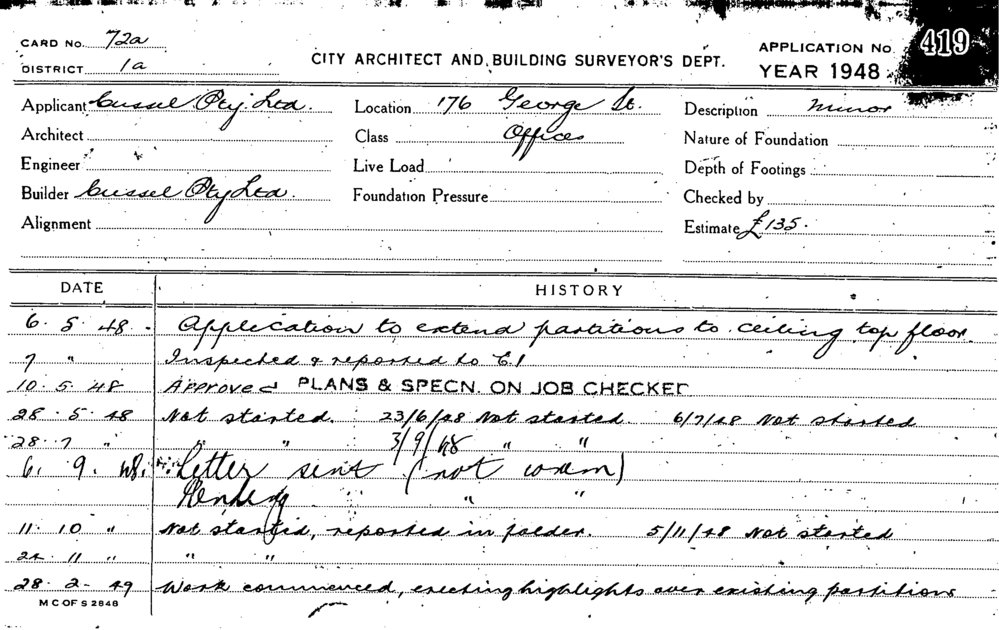 CARD No. 72a
DISTRICT 1a
CITY ARCHITECT AND BUILDING SURVEYOR'S DEPT.
APPLICATION No. 419
YEAR 1948
Applicant Cussel Pty. Ltd. Location 176 George St. Description Minor
Architect Class Offices Nature of Foundation
Engineer Live Load Depth of Footings
Builder Cussel Pty Ltd Foundation Pressure Checked by
Alignment Estimate £135.
DATE HISTORY
6. 5. 48. Application to extend partitions to ceiling top floor.
7 " Inspected & reported to C1
10. 5. 48 Approved PLANS & SPECN. ON JOB CHECKED
28. 5. 48 Not started. 23/6/48 Not started. 6/7/48 Not started
28. 7 " " " 3/9/48 " "
6. 9. 48. Letter sent (not com)
Pending " "
11. 10 " Not started, reported in folder. 5/11/48 Not started
24. 11 " " "
28. 2. 49 Work commenced, erecting highlights over existing partitions
M C OF S 2848